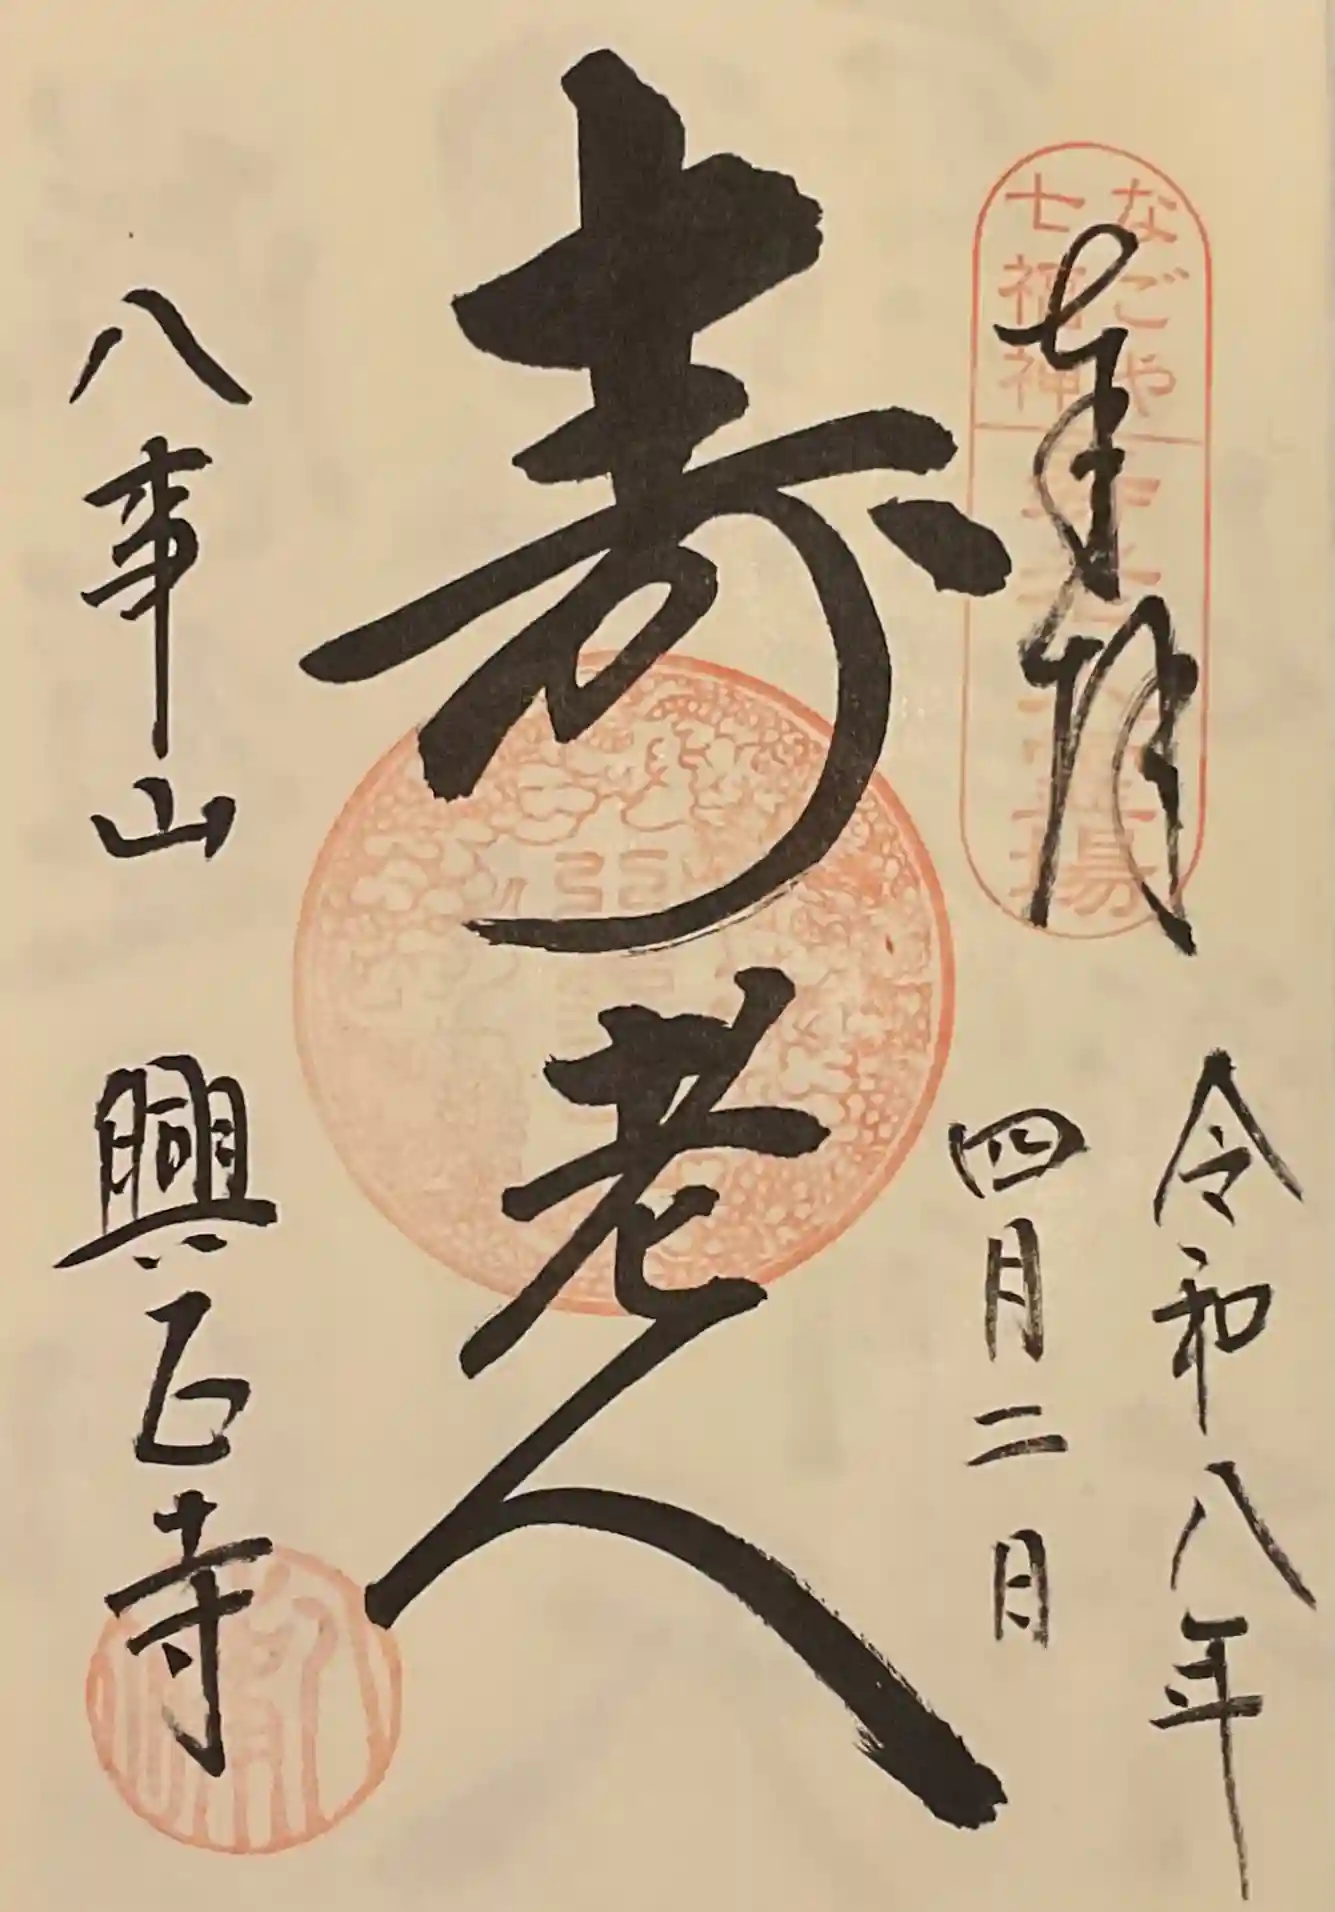 奉拝
なごや
七福神
寿老人霊場
令和八年
四月二日
寿老人
八事山 興正寺